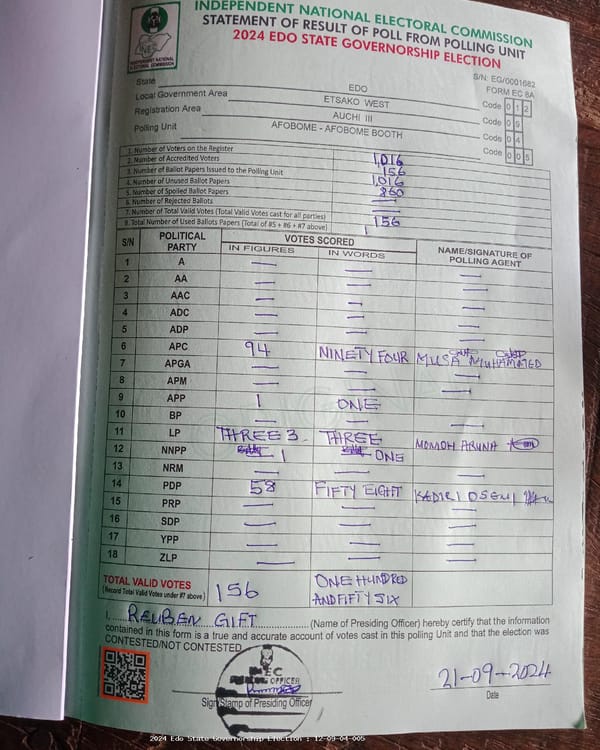 INDEPENDENT NATIONAL ELECTORAL COMMISSION
STATEMENT OF RESULT OF POLL FROM POLLING UNIT
2024 EDO STATE GOVERNORSHIP ELECTION
INEC
INDEPENDENT NATIONAL ELECTORAL COMMISSION
S/N: EG/0001682
FORM EC 8A
State EDO Code 0 1 2
Local Government Area ETSAKO WEST Code 0 9
Registration Area AUCHI III Code 0 4
Polling Unit AFOBOME - AFOBOME BOOTH Code 0 0 5
1. Number of Voters on the Register 1,016
2. Number of Accredited Voters 156
3. Number of Ballot Papers Issued to the Polling Unit 1,016
4. Number of Unused Ballot Papers 860
5. Number of Spoiled Ballot Papers —
6. Number of Rejected Ballots —
7. Number of Total Valid Votes (Total Valid Votes cast for all parties) 156
8. Total Number of Used Ballots Papers (Total of #5 + #6 + #7 above)
S/N POLITICAL PARTY VOTES SCORED NAME/SIGNATURE OF POLLING AGENT
IN FIGURES IN WORDS
1 A — — —
2 AA — — —
3 AAC — — —
4 ADC — — —
5 ADP — — —
6 APC 94 NINETY FOUR MUSA MUHAMMED
7 APGA — — —
8 APM — — —
9 APP 1 ONE
10 BP — — —
11 LP THREE 3 THREE MOMOH ARUNA
12 NNPP 1 ONE
13 NRM — — —
14 PDP 58 FIFTY EIGHT KADIRI OSENI
15 PRP — — —
16 SDP — — —
17 YPP — — —
18 ZLP — — —
TOTAL VALID VOTES 156 ONE HUNDRED AND FIFTY SIX
(Record Total Valid Votes under #7 above)
I, REUBEN GIFT (Name of Presiding Officer) hereby certify that the information
contained in this form is a true and accurate account of votes cast in this polling Unit and that the election was
CONTESTED/NOT CONTESTED
OFFICER
21-09-2024
Sign/Stamp of Presiding Officer
Date
2024 Edo State Governorship Election : 12-09-04-005